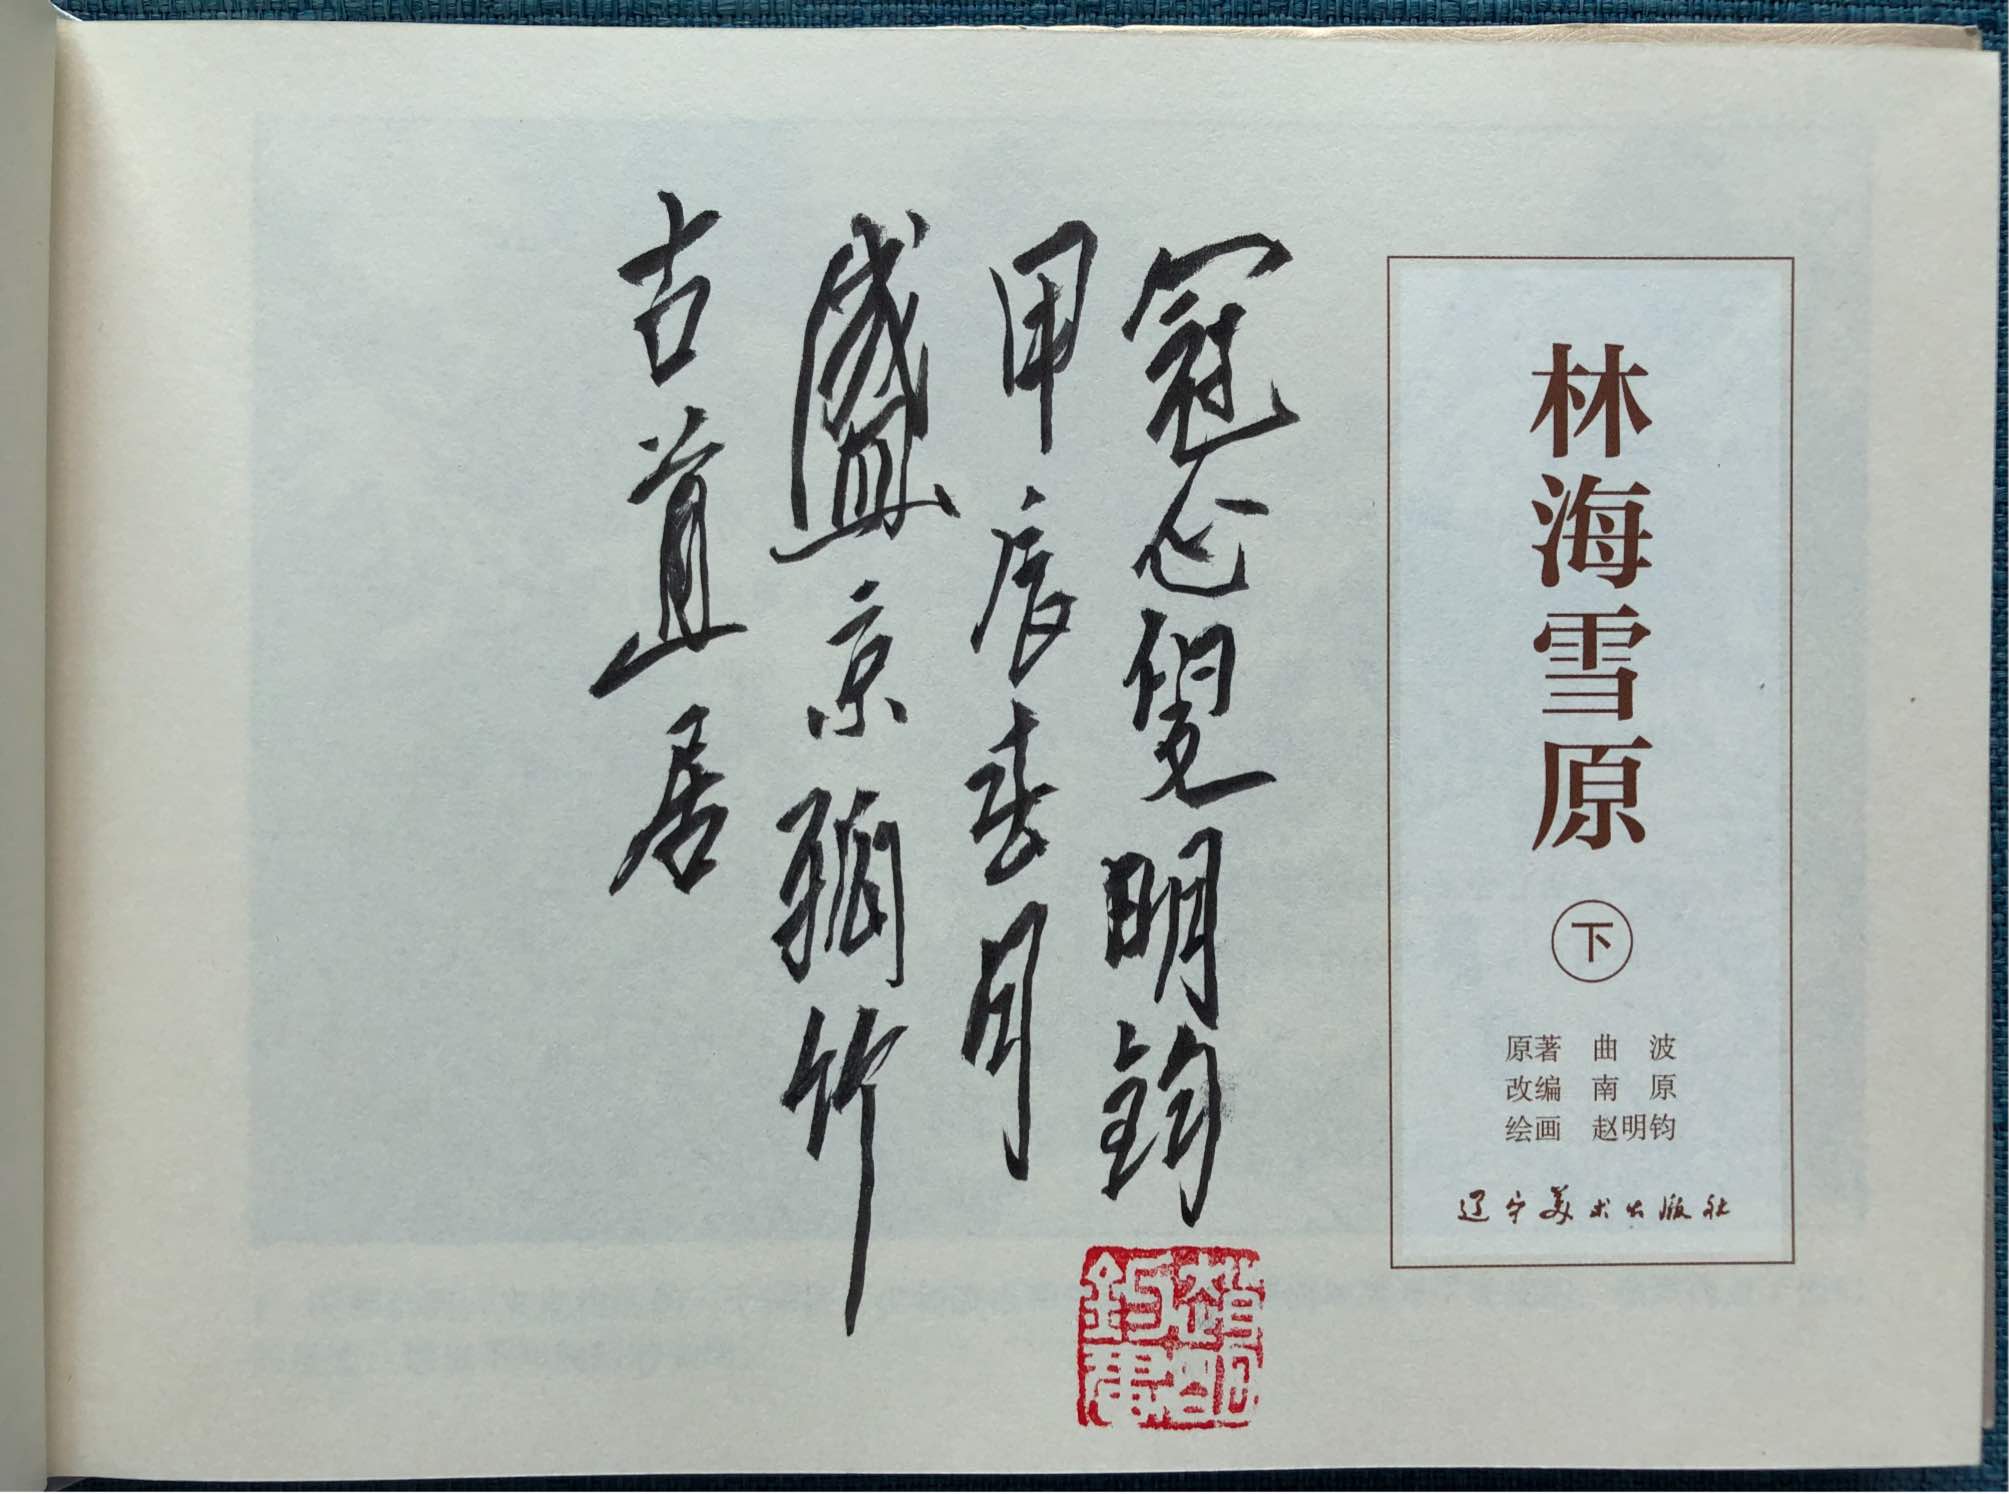 林海雪原
下
原著 曲 波
改编 南 原
绘画 赵明钧
辽宁美术出版社
冠心叟明钧
甲辰春月
盛京弱竹
古直居
赵明
钧画